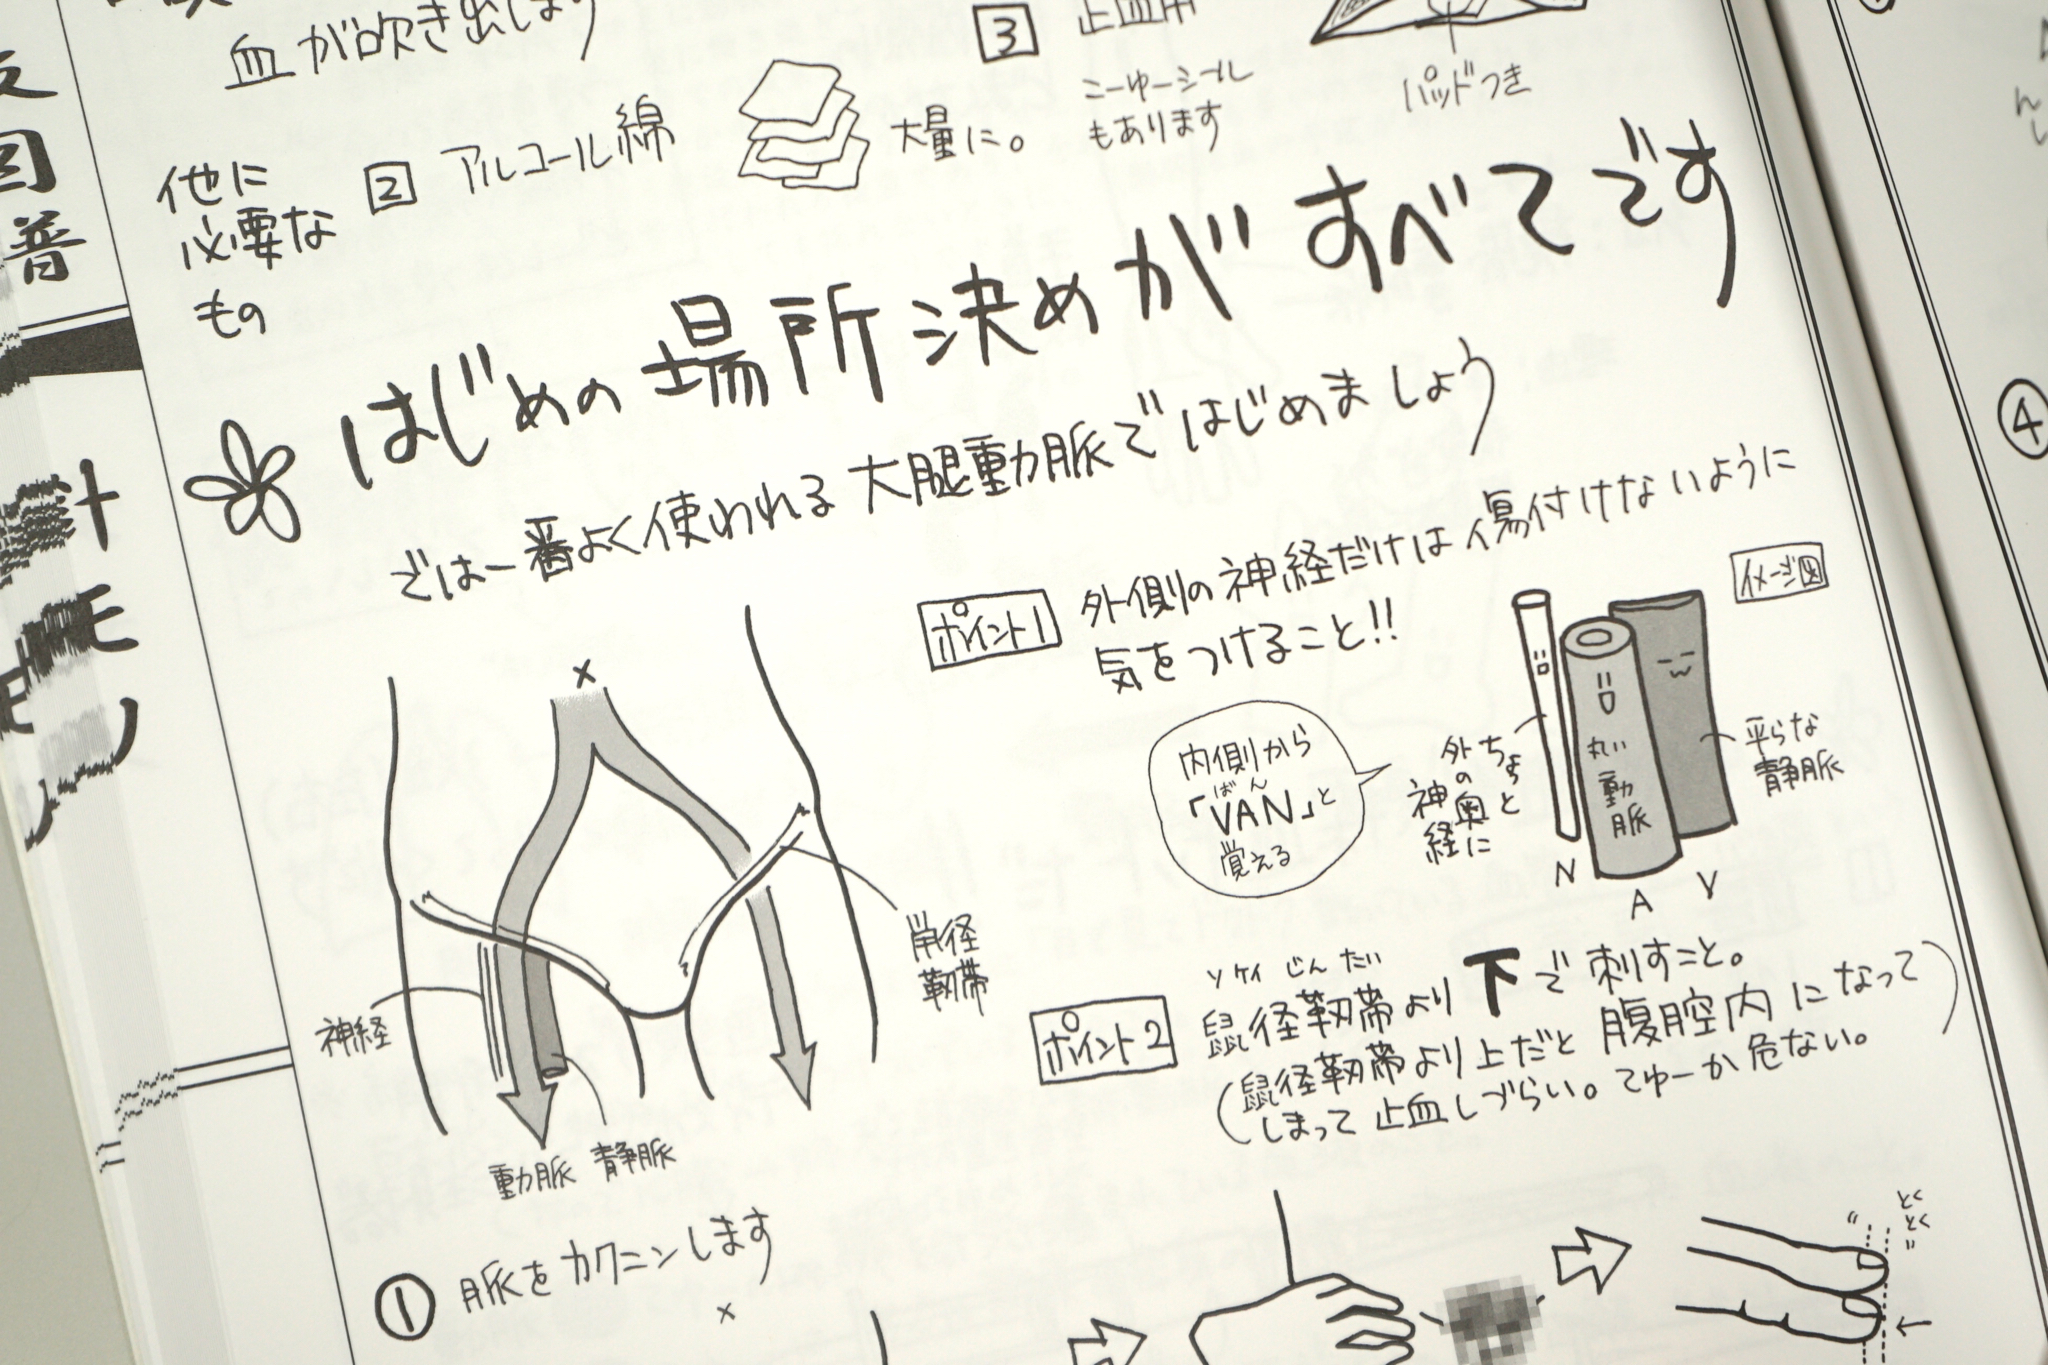 血が吹き出します
他に
必要な
もの
2
アルコール綿
大量に。
3
止血用
こーゆーシール
もあります
パッドつき
はじめの場所決めがすべてです
では一番よく使われる大腿動脈ではじめましょう
ポイント1
外側の神経だけは傷付けないように
気をつけること!!
イメージ図
内側から
ばん
「VAN」と
覚える
ちょっと
外の奥に
神経
丸い
動脈
平らな
静脈
N
A
V
×
鼡径
靭帯
神経
動脈 静脈
ポイント2
ソケイ じんたい
鼠径靭帯より下で刺すこと。
(鼠径靭帯より上だと腹腔内になって
しまって止血しづらい。てゆーか危ない。)
① 脈をカクニンします
×
とく
とく
④